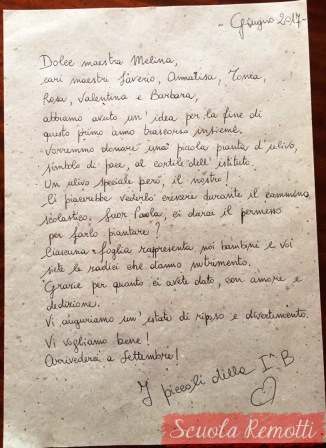 ~ Giugno 2017 ~
Dolce maestra Melina,
cari maestri Saverio, Annalisa, Tonia,
Rosa, Valentina e Barbara,
abbiamo avuto un' idea per la fine di
questo primo anno trascorso insieme.
Vorremmo donare una piccola pianta d'ulivo,
simbolo di pace, al cortile dell' istituto.
Un ulivo speciale però, il nostro!
Ci piacerebbe vederlo crescere durante il cammino
scolastico. Suor Paola, ci darai il permesso
per farlo piantare?
Ciascuna foglia rappresenta noi bambini e voi
siete le radici che danno nutrimento.
Grazie per quanto ci avete dato, con amore e
dedizione.
Vi auguriamo un' estate di riposo e divertimento.
Vi vogliamo bene!
Arrivederci a Settembre!
I piccoli della I^ B
Scuola Remotti